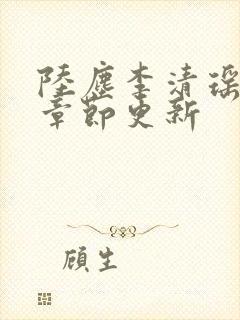 陸塵李清瑤
章節更新
顧生